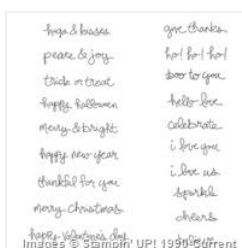 hugs & kisses
peace & joy
trick or treat
happy halloween
merry & bright
happy new year
thankful for you
merry Christmas
happy valentine's day
give thanks
ho! ho! ho!
boo to you
hello love
celebrate
i love you
i love us
sparkle
cheers
believe
Images © Stampin' UP! 1990-Current